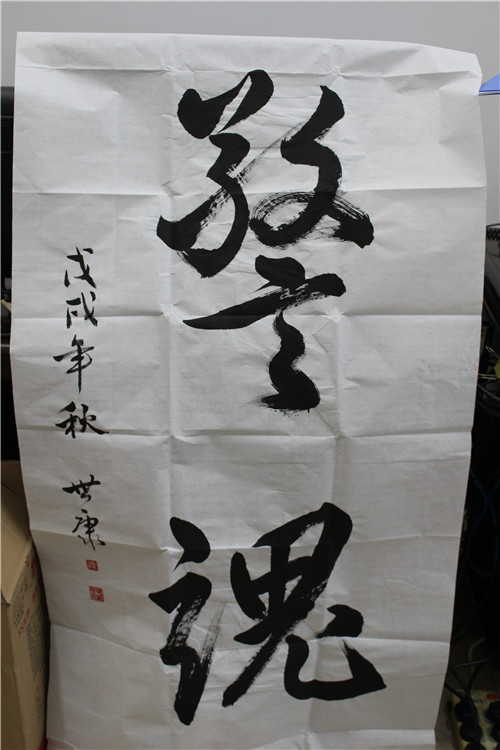 警魂
戊戌年秋 世康